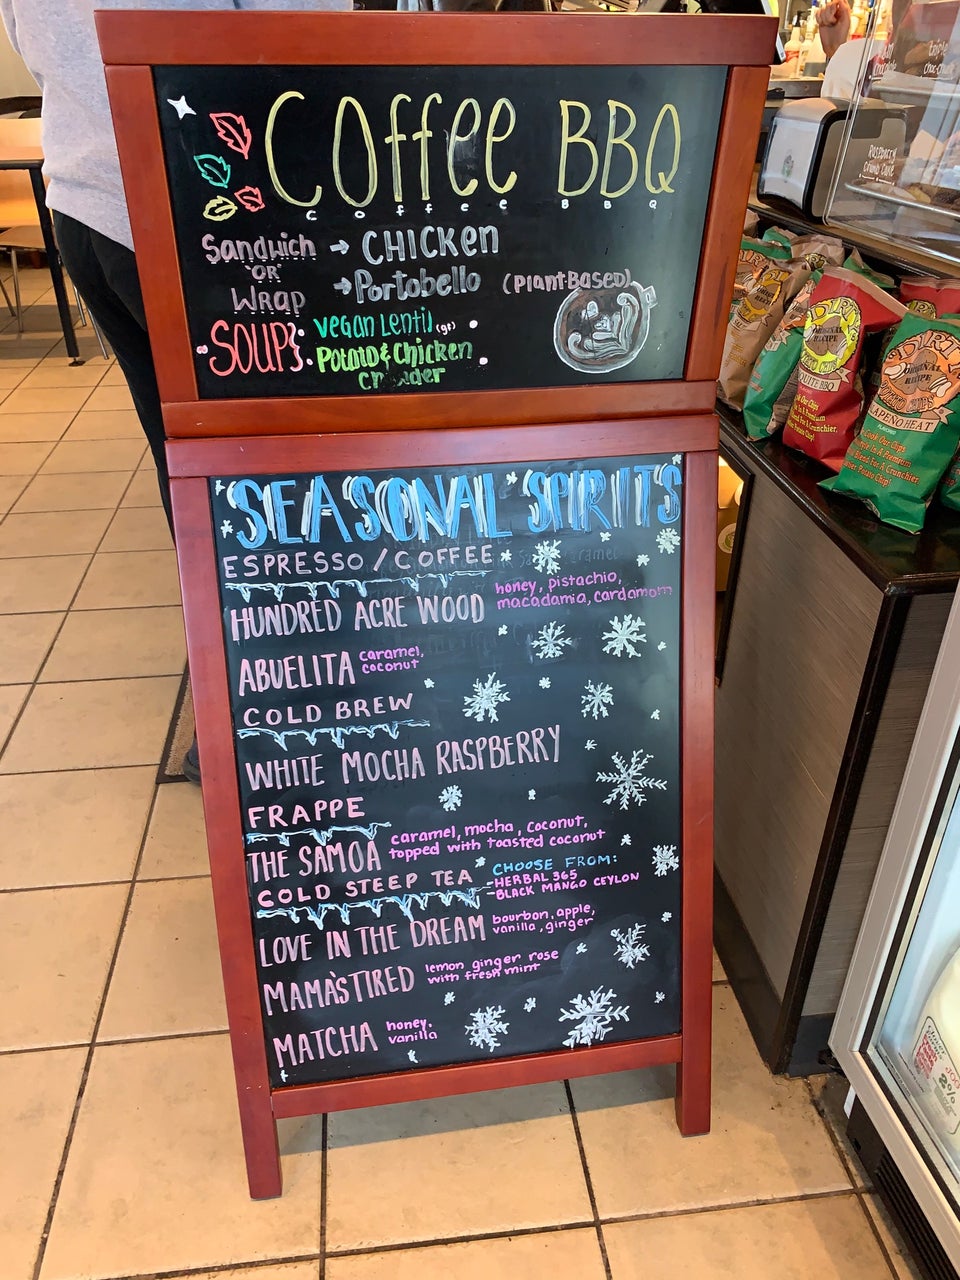 Coffee BBQ
Coffee BBQ
Sandwich → CHICKEN
"OR" → Portobello (PlantBased)
WRAP
SOUPS: Vegan Lentil (gf)
Potato & Chicken
chowder
SEASONAL SPIRITS
ESPRESSO/COFFEE
HUNDRED ACRE WOOD honey, pistachio,
macadamia, cardamom
ABUELITA caramel,
coconut
COLD BREW
WHITE MOCHA RASPBERRY
FRAPPE
THE SAMOA caramel, mocha, coconut,
topped with toasted coconut
COLD STEEP TEA CHOOSE FROM:
-HERBAL 365
-BLACK MANGO CEYLON
LOVE IN THE DREAM bourbon, apple,
vanilla, ginger
MAMA'S TIRED lemon ginger rose
with fresh mint
MATCHA honey,
vanilla
Raspberry
Crumb Cake
DIRTY
ORIGINAL
RECIPE
POTATO CHIPS
MESQUITE BBQ
DIRTY
ORIGINAL
RECIPE
POTATO CHIPS
JALAPENO HEAT
2%